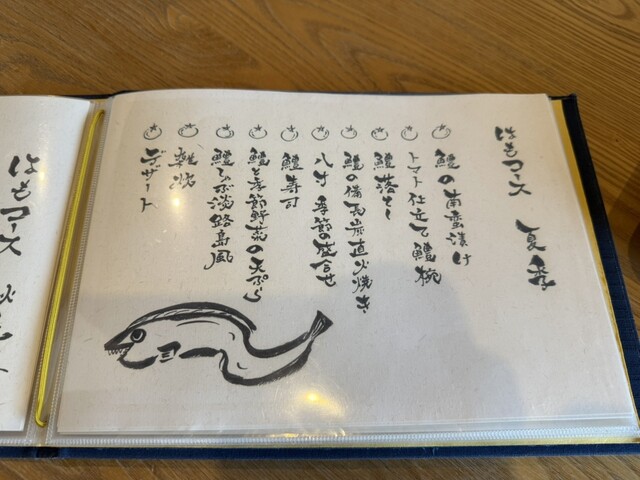 はもコース 夏季
鱧の南蛮漬け
トマト仕立て鱧椀
鱧落とし
鱧の備長炭直火焼き
八寸 季節の盛合せ
鱧寿司
鱧と季節野菜の天ぷら
鱧しゃぶ淡路島風
雑炊
デザート
はもコース 秋